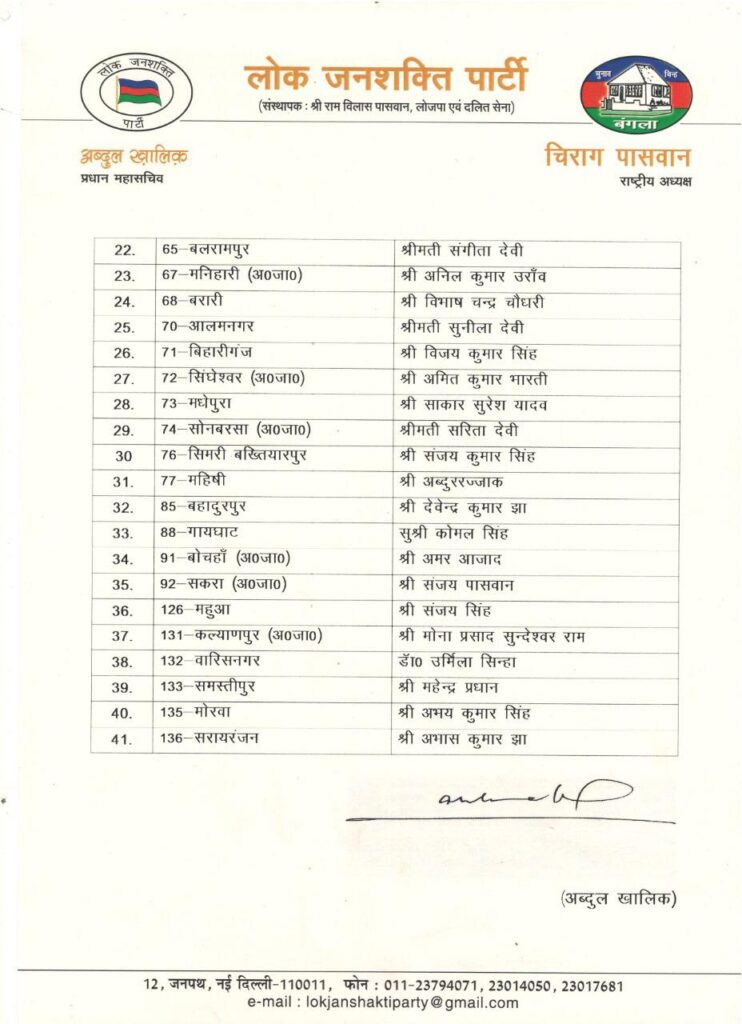 लोक जनशक्ति
पार्टी
लोक जनशक्ति पार्टी
(संस्थापक : श्री राम विलास पासवान, लोजपा एवं दलित सेना)
चुनाव चिन्ह
बंगला
अब्दुल ख़ालिक़
प्रधान महासचिव
चिराग पासवान
राष्ट्रीय अध्यक्ष
22. 65–बलरामपुर श्रीमती संगीता देवी
23. 67–मनिहारी (अ0जा0) श्री अनिल कुमार उराँव
24. 68–बरारी श्री विभाष चन्द्र चौधरी
25. 70–आलमनगर श्रीमती सुनीला देवी
26. 71–बिहारीगंज श्री विजय कुमार सिंह
27. 72–सिंघेश्वर (अ0जा0) श्री अमित कुमार भारती
28. 73–मधेपुरा श्री साकार सुरेश यादव
29. 74–सोनबरसा (अ0जा0) श्रीमती सरिता देवी
30 76–सिमरी बख्तियारपुर श्री संजय कुमार सिंह
31. 77–महिषी श्री अब्दुररज्जाक
32. 85–बहादुरपुर श्री देवेन्द्र कुमार झा
33. 88–गायघाट सुश्री कोमल सिंह
34. 91–बोचहाँ (अ0जा0) श्री अमर आजाद
35. 92–सकरा (अ0जा0) श्री संजय पासवान
36. 126–महुआ श्री संजय सिंह
37. 131–कल्याणपुर (अ0जा0) श्री मोना प्रसाद सुन्देश्वर राम
38. 132–वारिसनगर डॉ0 उर्मिला सिन्हा
39. 133–समस्तीपुर श्री महेन्द्र प्रधान
40. 135–मोरवा श्री अभय कुमार सिंह
41. 136–सरायरंजन श्री अभास कुमार झा
(अब्दुल खालिक)
12, जनपथ, नई दिल्ली-110011, फोन : 011-23794071, 23014050, 23017681
e-mail : lokjanshaktiparty@gmail.com